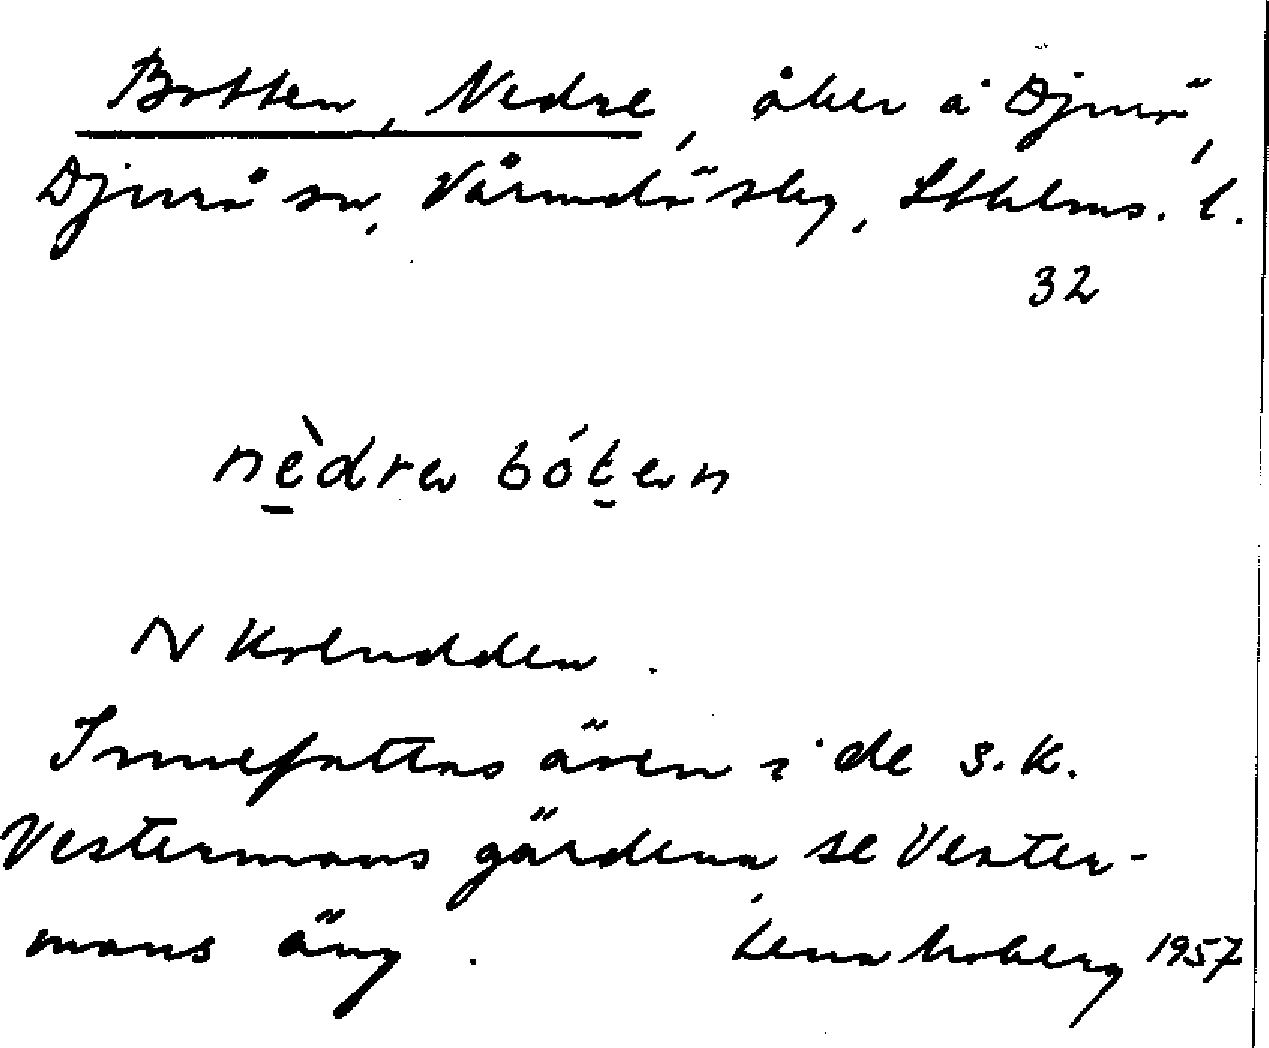 Botten, Nedre, åker å Djurö,
Djurö sn, Värmdö slg, Sthlms. l.
32
nèdrer bóten
N Koludden.
Innefattas även i de s.k.
Vestermans gärdena, se Vester-
mans äng. Lena Moberg 1957